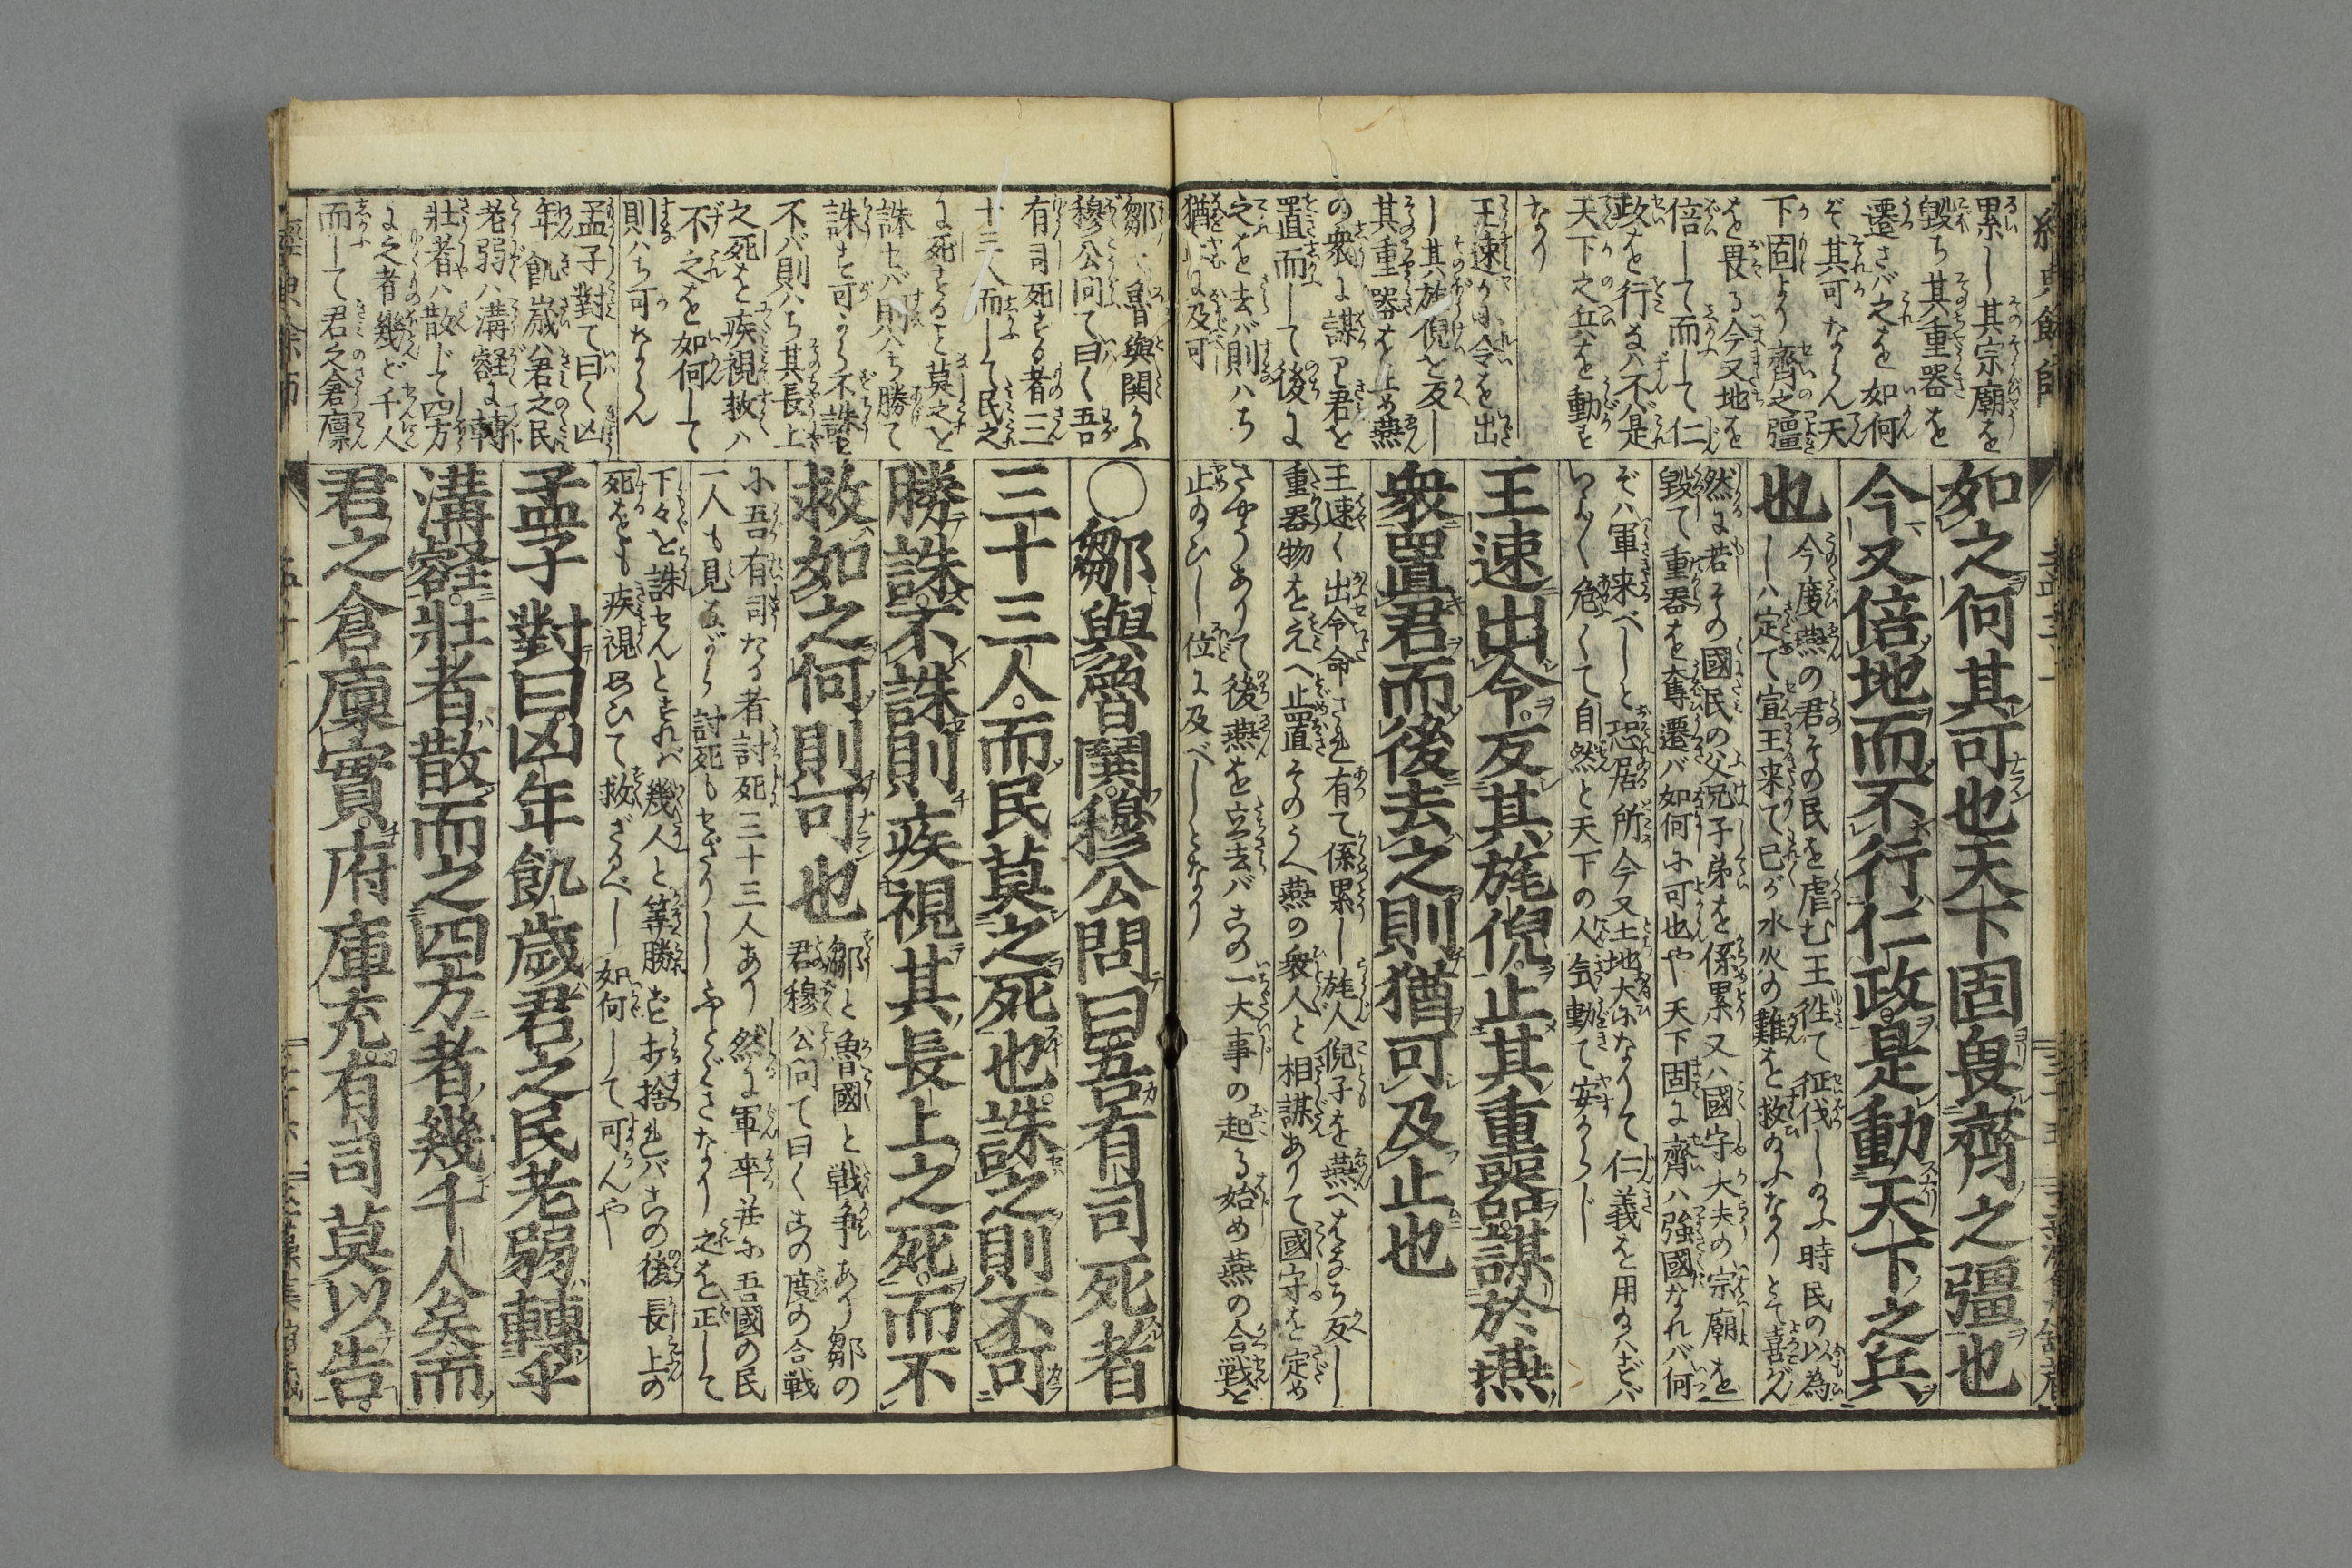 經典餘師
累し其宗廟を
毀ち其重器を
遷さバ之を如何
ぞ其可ならん天
下固より齊之彊
を畏る今又地を
倍して而して仁
政を行なハ不バ是
天下之兵を動す
なり
王速かに令を出
し其旄倪を反し
其重器を止め燕
の衆に謀り君を
置而して後に
之を去バ則ハち
猶に及可
如之何其可也天下固畏齊之彊也
今又倍地而不行仁政是動天下之兵
也
今度燕の君その民を虐む王往て征伐しのふ時民の以為
しハ定て宣王来て已が水火の難を救のふなりとて喜びん
然に若その國民の父兄子弟を係累又ハ國守大夫の宗廟を
毀て重器を奪遷バ如何に可也や天下固に齊ハ強國なれバ何
ぞハ軍来べしと恐居所今又土地大になりて仁義を用ハざバ
いよ〳〵危くて自然と天下の人気動て安からじ
王速出令反其旄倪止其重器謀於燕
衆置君而後去之則猶可及止也
王速く出令命され有て係累し旄人倪子を燕へはなち反し
重器物をそへ止置そのうへ燕の衆人と相謀ありて國守を定め
さやうありて後燕を立去バ此の一大事の起る始め燕の合戦を
止のひし位に及べしとなり
鄒と魯與鬨かふ
穆公問て曰く吾
有司死する者三
十三人而して民之
に死すること莫之を
誅セバ則ハち勝て
誅す可から不誅せ
不バ則ハち其長上
之死を疾視救ハ
不之を如何して
則ハち可ならん
孟子對て曰く凶
年飢歳ハ君之民
老弱ハ溝壑に轉
壮者ハ散じて四方
に之者幾ど千人
而して君之倉廩
○鄒與魯鬨穆公問曰吾有司死者
三十三人而民莫之死也誅之則不可
勝誅不誅則疾視其長上之死而不
救如之何則可也
鄒と魯國と戦争あり鄒の
君穆公問て曰く此の度の合戦
に吾有司たる者討死三十三人あり然に軍卒并に吾國の民
一人も見ながら討死もセざりしふとゞきなり之を正して
下々を誅せんとすれバ幾人と筭勝ずお捨れバ此の後長上の
死をも疾視思ひて救ざるべし如何して可んや
孟子對曰凶年飢歳君之民老弱轉乎
溝壑壮者散而之四方者幾千人矣而
君之倉廩實府庫充有司莫以告